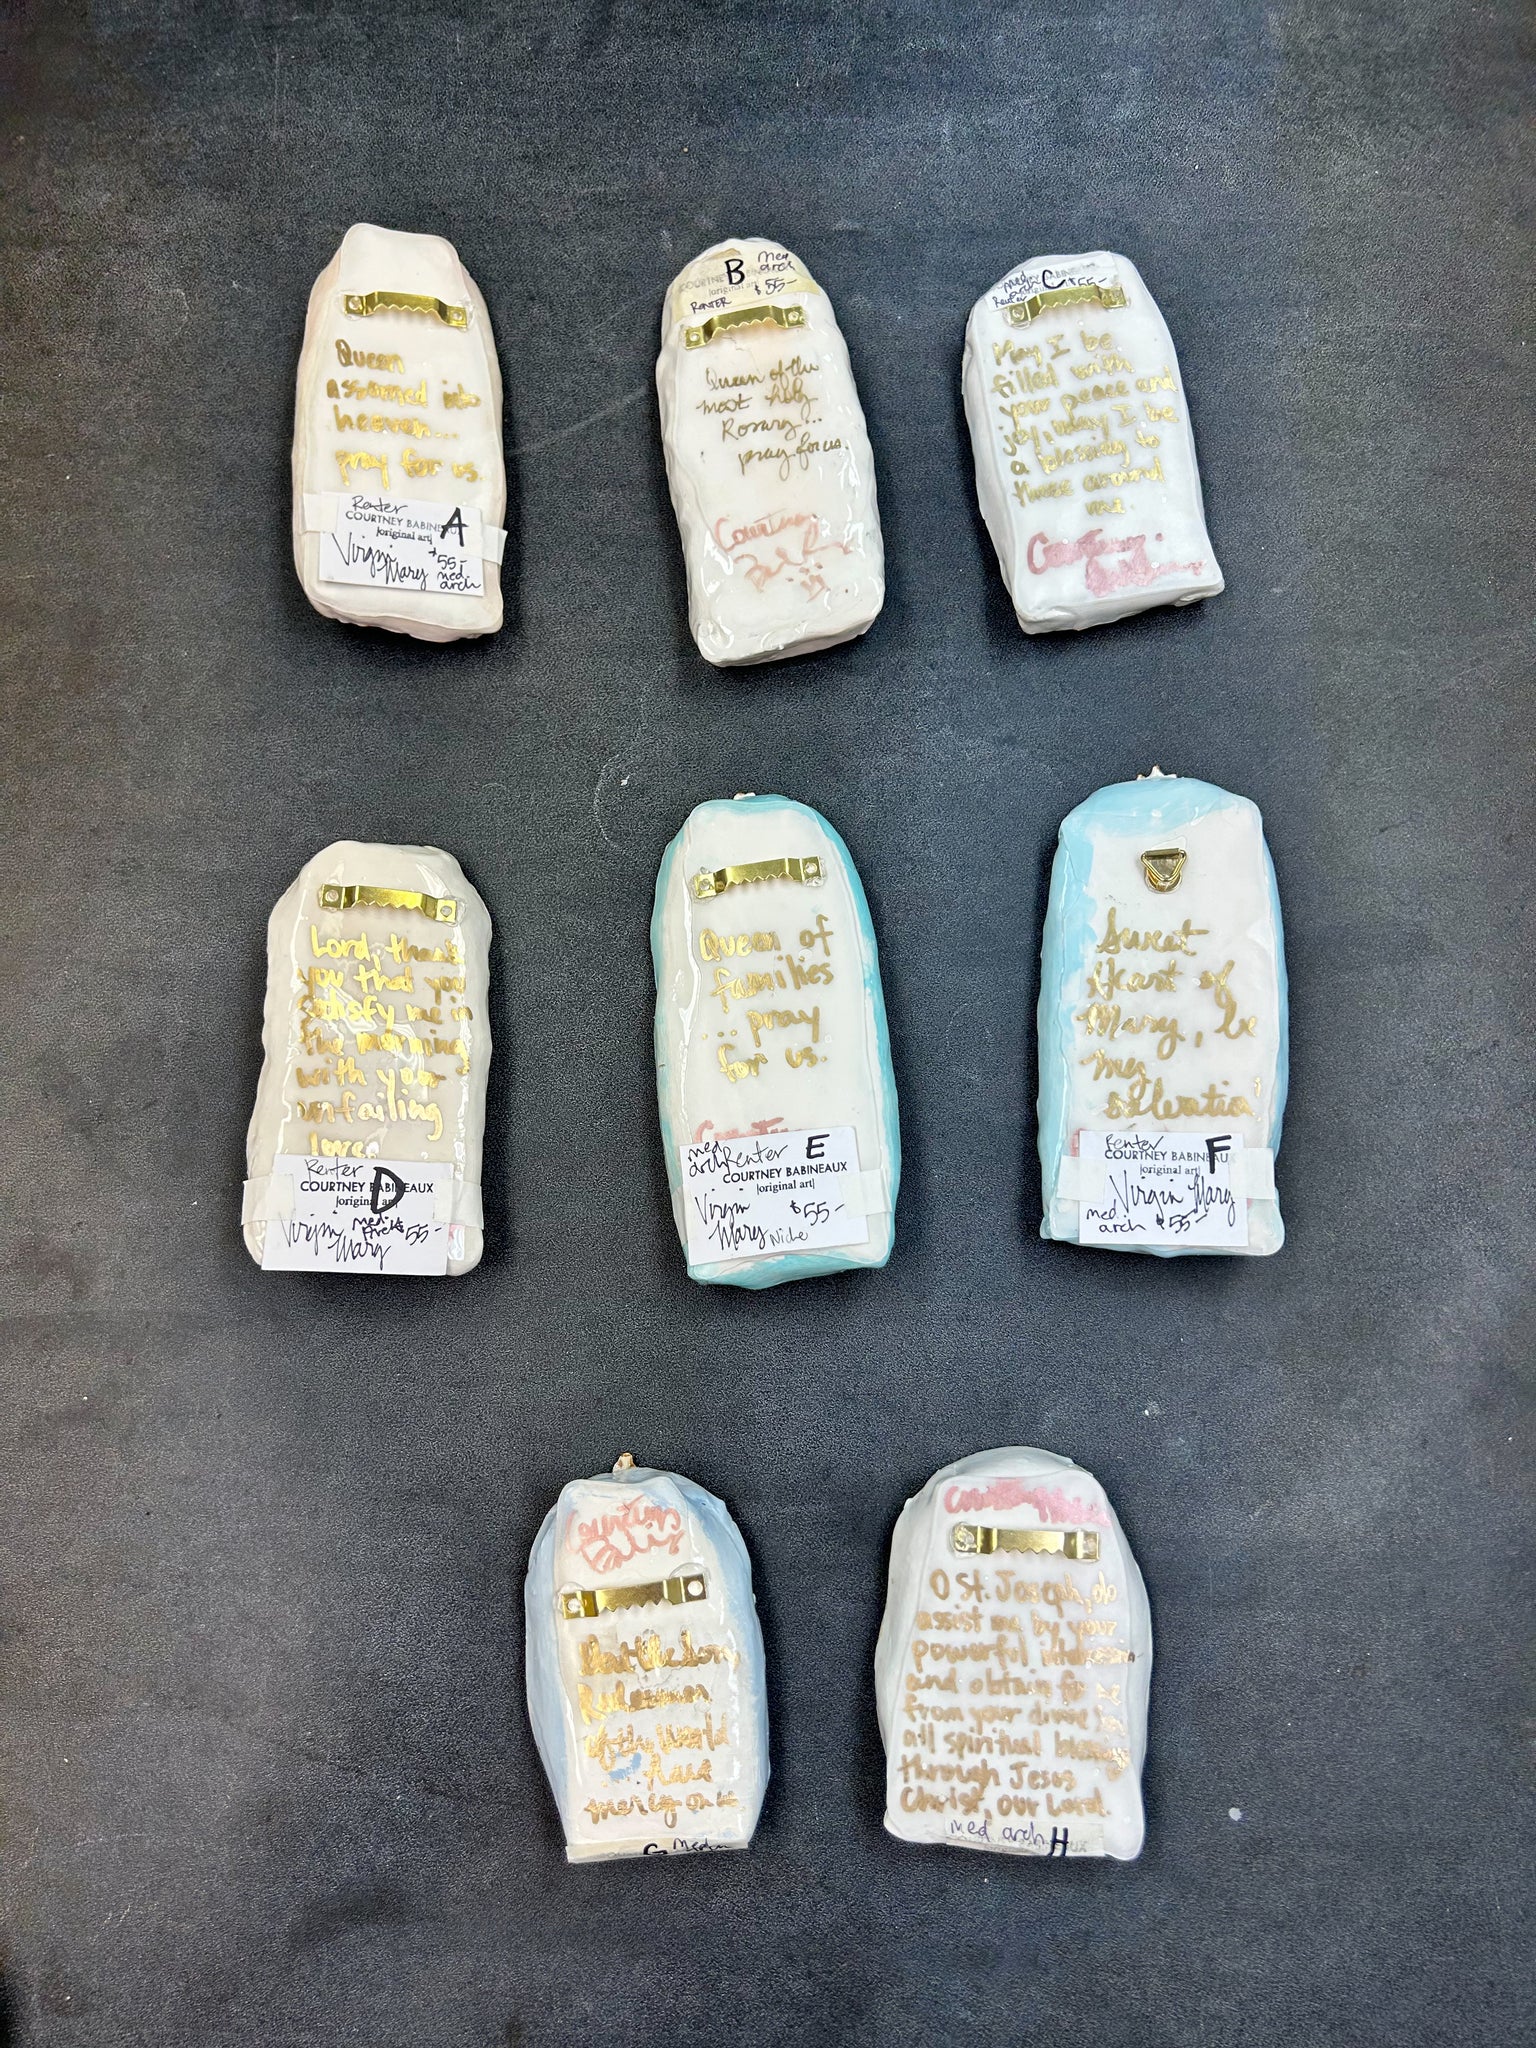 Queen
assumed into
heaven...
pray for us.
Renter
COURTNEY BABINEAU
|original art|
A
Virgin
Mary
$55-
med
arch
B
med
arch
$55-
RENTER
Queen of the
most holy
Rosary...
pray for us.
Courtney
med
arch
C
$55-
Renter
May I be
filled with
your peace and
joy, may I be
a blessing to
those around
me.
Courtney
Lord, thank
you that you
satisfy me in
the morning
with your
unfailing
love.
Renter
D
COURTNEY BABINEAUX
|original art|
Virgin
Mary
med
arch
$55-
Queen of
families
... pray
for us.
med
arch
Renter
E
COURTNEY BABINEAUX
|original art|
Virgin
Mary
$55-
Niche
Sweet
Heart of
Mary, be
my
salvation
Renter
F
COURTNEY BABINEAUX
|original art|
Virgin Mary
med
arch
$55-
Courtney
of the World
have
mercy on us
G
O St. Joseph, do
assist me by your
powerful
and obtain for me
from your divine
all spiritual blessings
through Jesus
Christ, our Lord.
med arch H